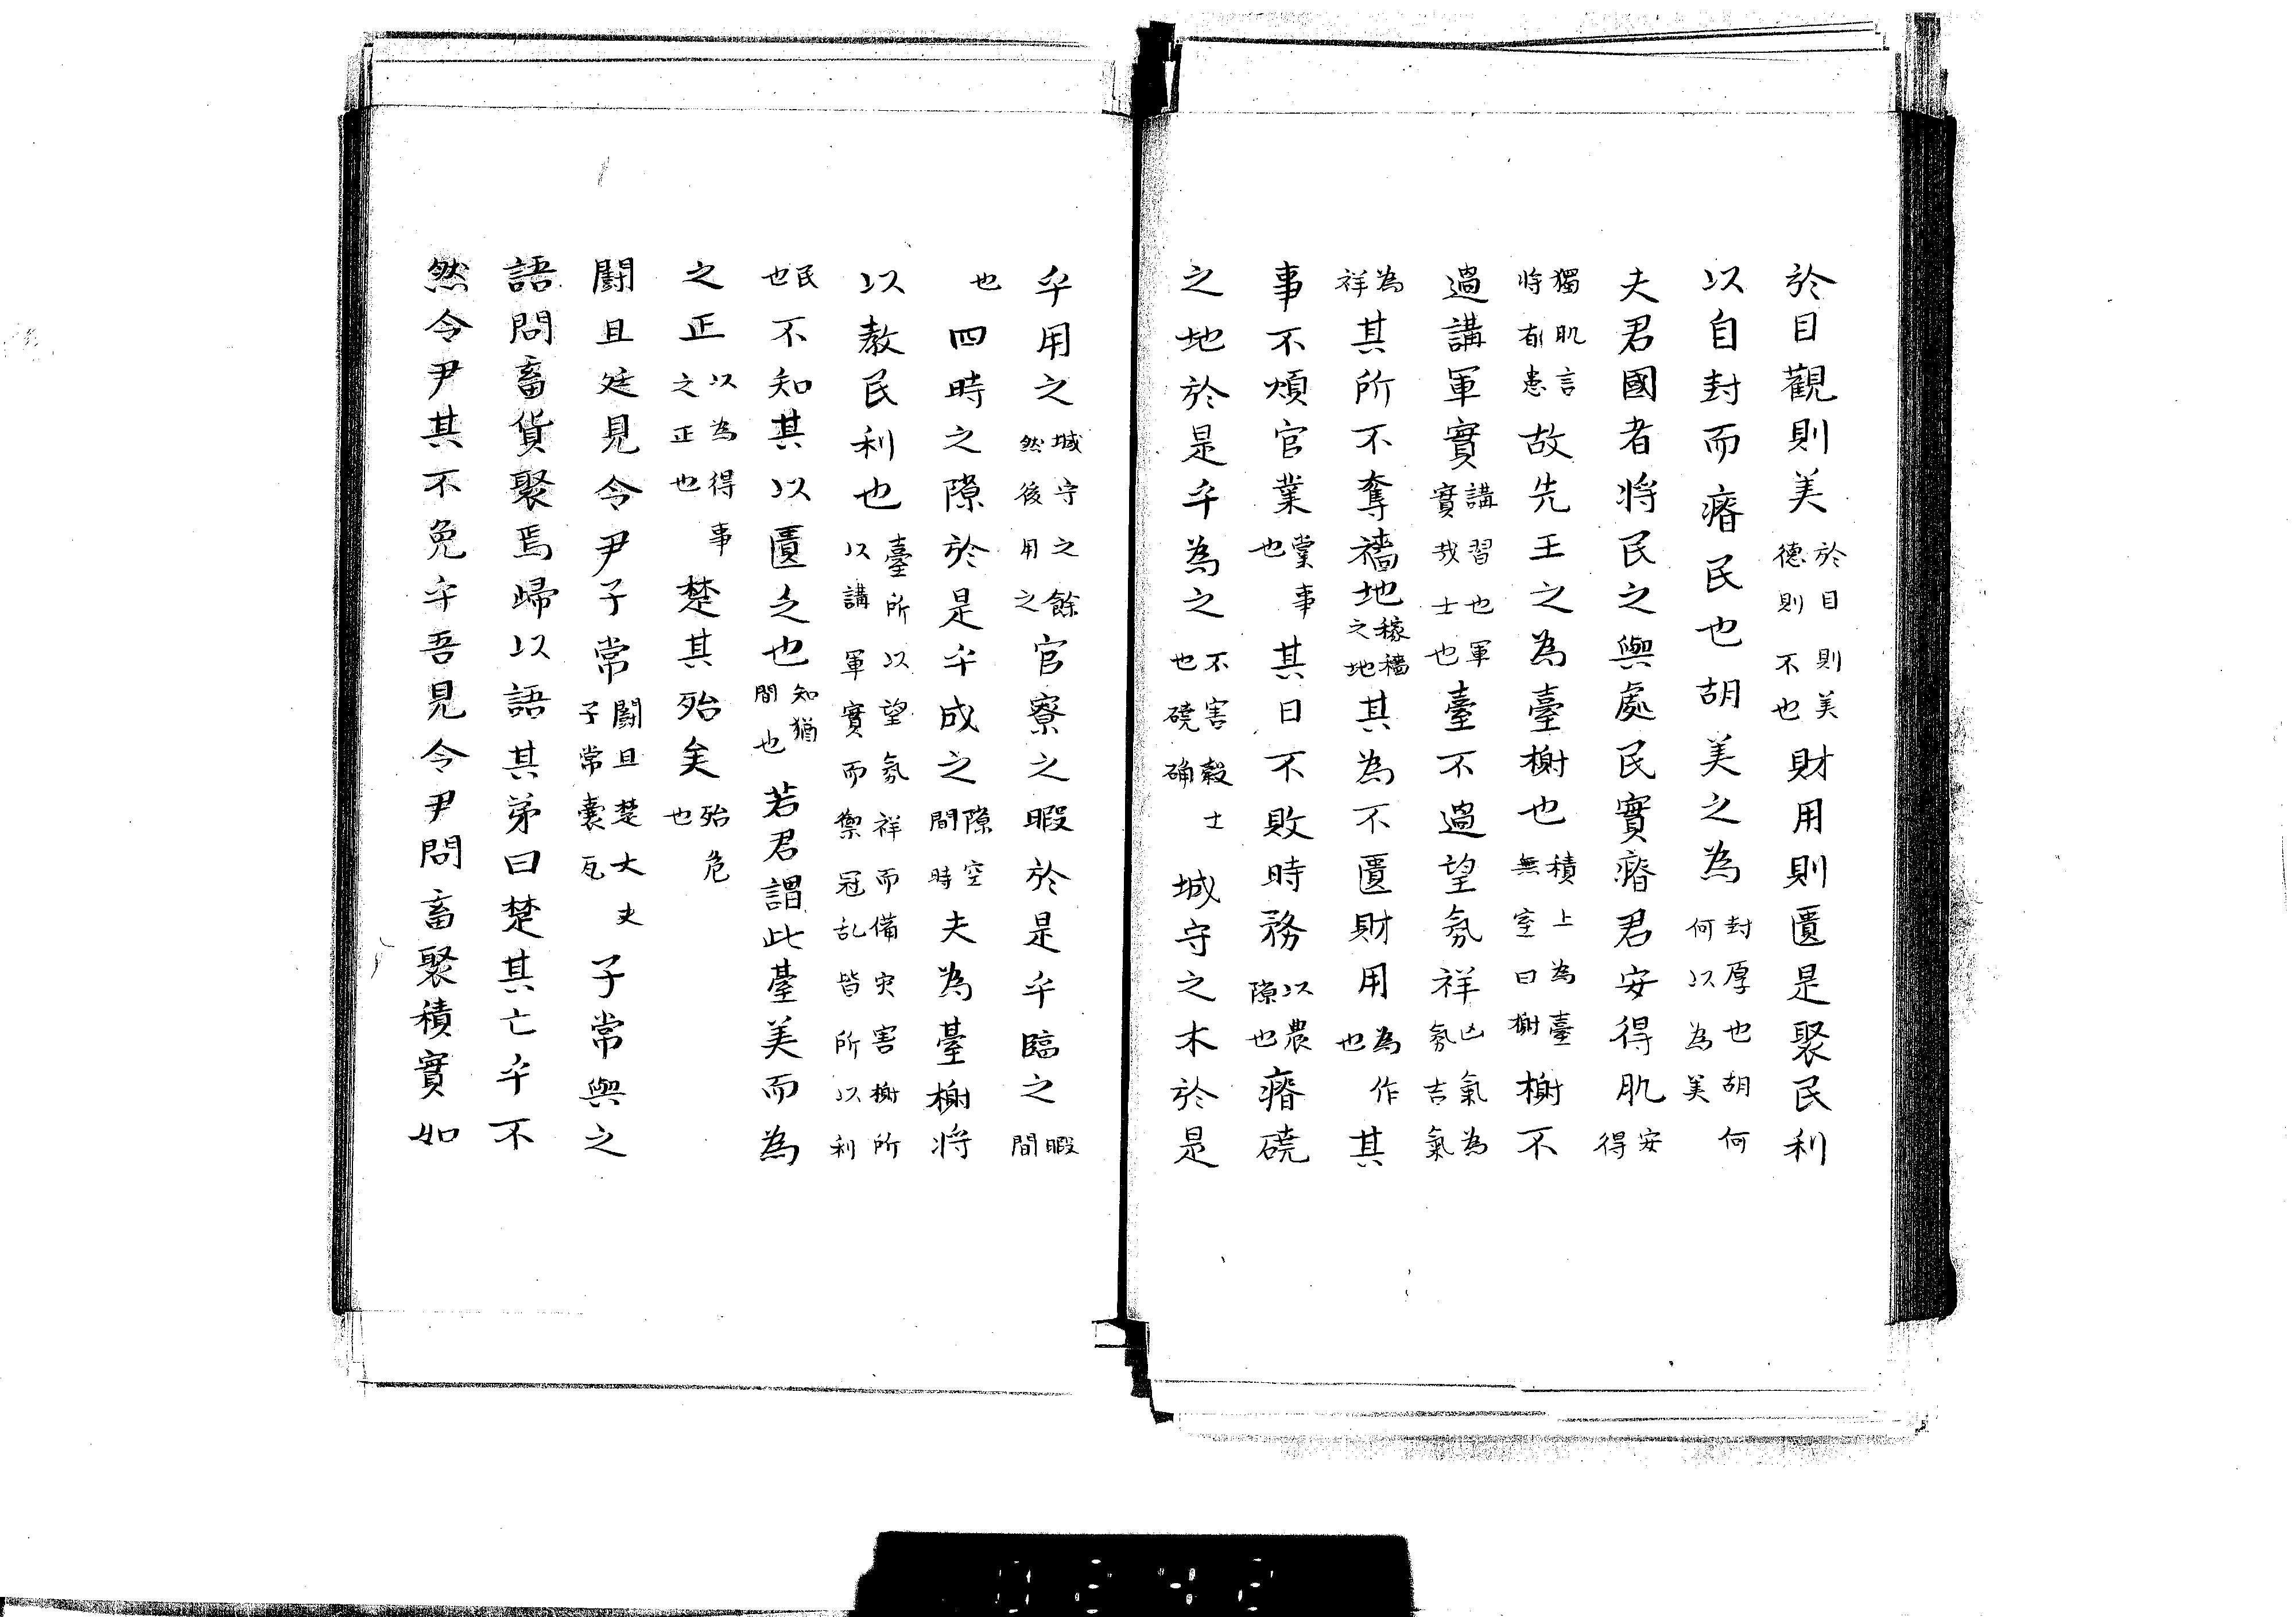 於目觀則美於目則美德則不也財用則匱是聚民利
以自封而瘠民也胡美之為封厚也胡何何以為美
夫君國者將民之與處民實瘠君安得肥安得
獨肥言將有患故先王之為臺榭也積上為臺無室曰榭榭不
過講軍實講習也軍實戎士也臺不過望氛祥凶氣為氛吉氣
為祥其所不奪穡地稼穡之地其為不匱財用為作也其
事不煩官業業事也其日不敗時務以農隙也瘠磽
之地於是乎為之不害穀士也磽确城守之木於是
乎用之城守之餘然後用之官寮之暇於是乎臨之暇間
也四時之隙於是乎成之隙空間時夫為臺榭將
以教民利也臺所以望氛祥而備災害榭所以講軍實而禦冠乱皆所以利
民也不知其以匱之也知猶間也若君謂此臺美而為
之正以為得事之正也楚其殆矣殆危也
鬭且廷見令尹子常鬭且楚大夫子常囊瓦子常與之
語問畜貨聚焉歸以語其弟曰楚其亡乎不
然令尹其不免乎吾見令尹問畜聚積實如